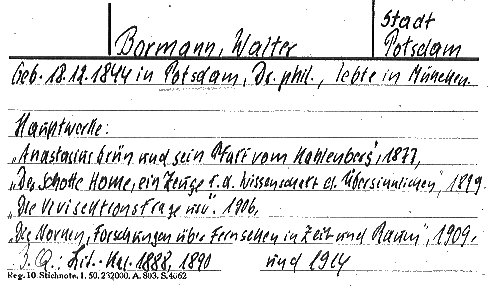 Stadt
Bormann, Walter Potsdam
Geb. 18.12.1844 in Potsdam, Dr. phil., lebte in München.
Hauptwerke:
„Anastasius Grün und sein Pfaff vom Kahlenberg", 1877,
„Der Schotte Home, ein Zeuge f. d. Wissenschaft d. Übersinnlichen", 1899.
„Die Vivisektionsfrage 1906.
„Die Nornen, Forschungen über Fernsehen in Zeit und Raum", 1909.
Z. Q.: Lit.-Kal. 1888, 1890 und 1914
Reg. 10. Stichnote. 1. 50. 232000. A. 803. S. 4662